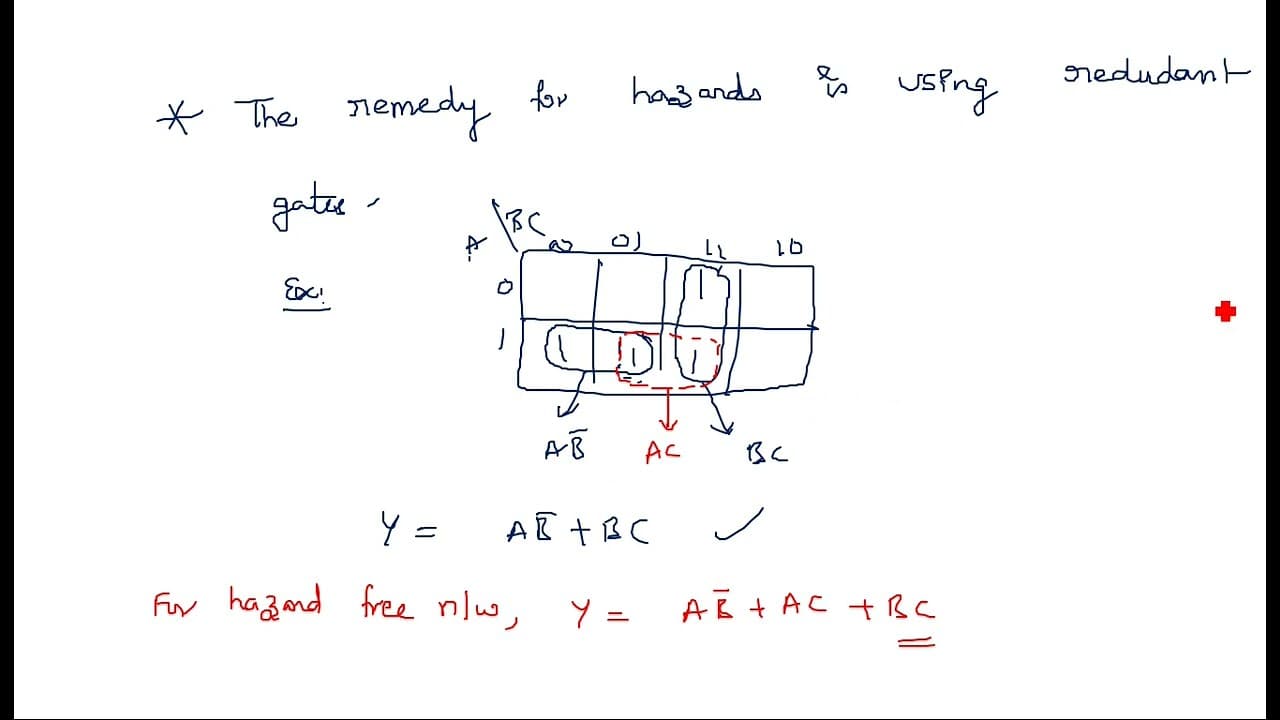 * The remedy for hazards is using redudant
gates.
Ex:
A \ BC 00 01 11 10
0 1
1 1 1 1
AB̅ AC BC
Y = AB̅ + BC ✓
For hazard free n/w, Y = AB̅ + AC + BC